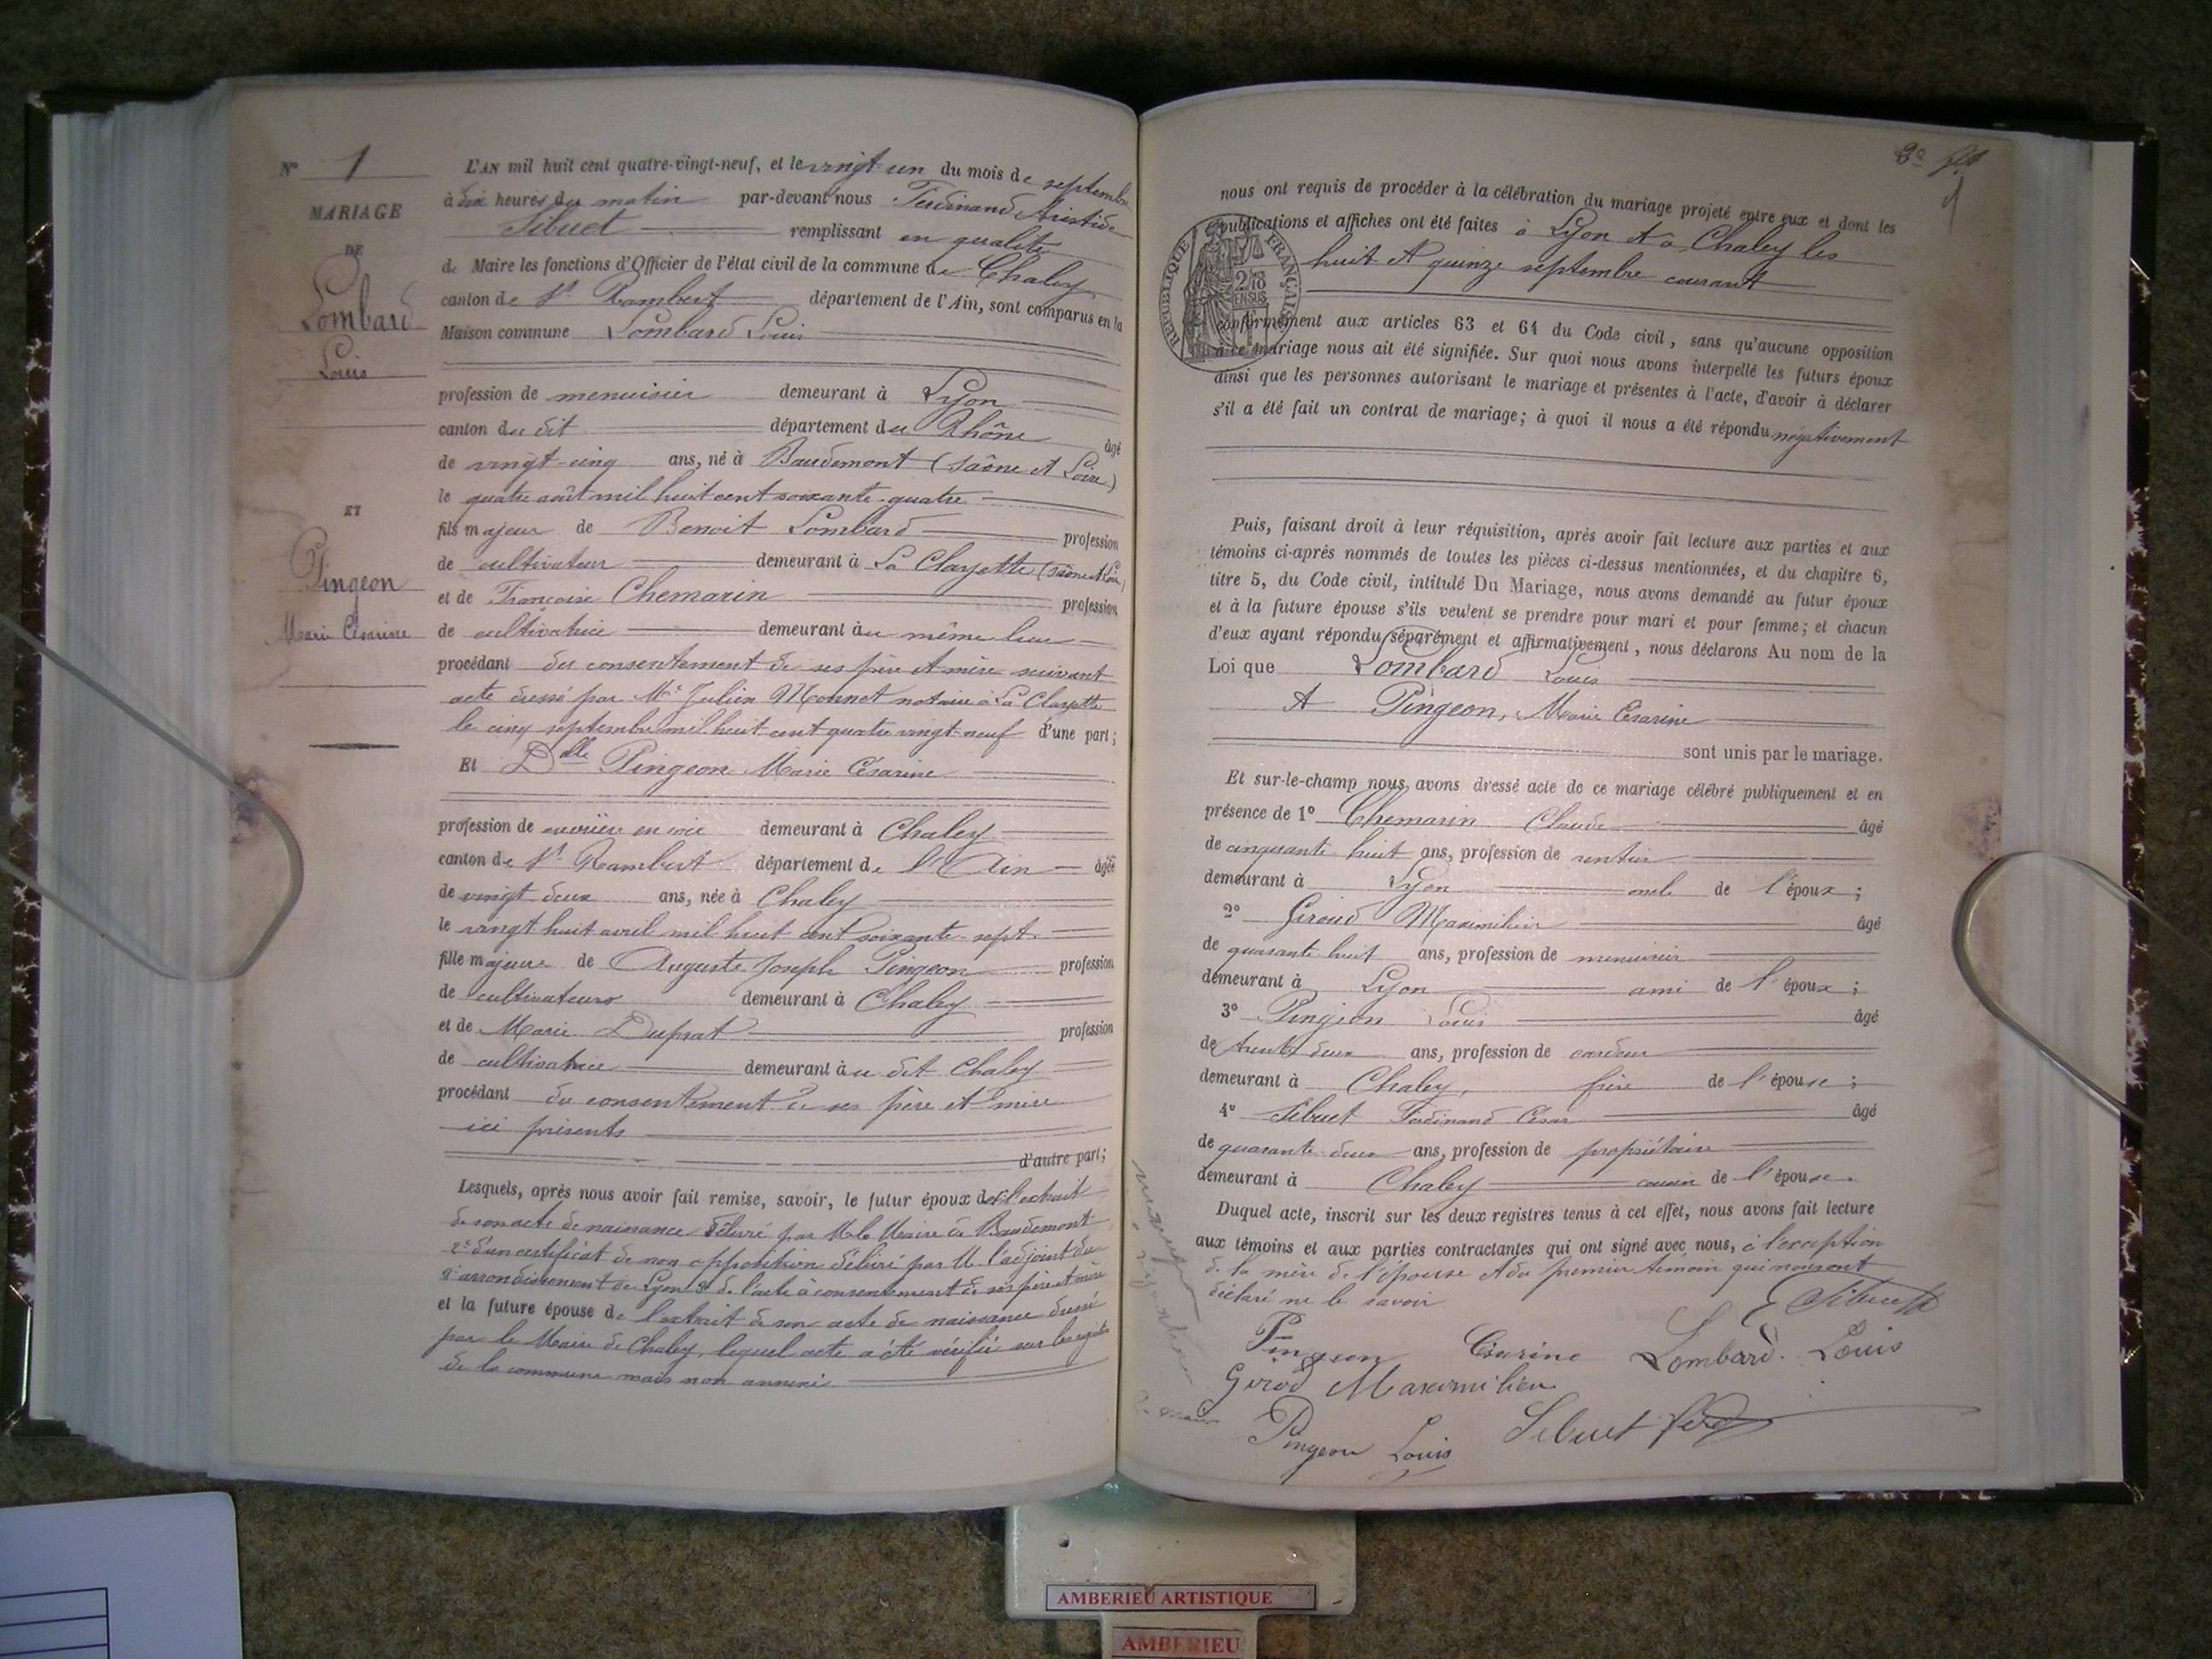 N° 1
MARIAGE
DE
Lombard
Louis
ET
Pingeon
Marie Césarine
L'AN mil huit cent quatre-vingt-neuf, et le vingt un du mois de septembre
à dix heures du matin par-devant nous Ferdinand Aristide
Sibuet remplissant en qualité
de Maire les fonctions d'Officier de l'état civil de la commune de Chaley
canton de St Rambert département de l'Ain, sont comparus en la
Maison commune Lombard Louis
profession de menuisier demeurant à Lyon
canton du dit département du Rhône âgé
de vingt-cinq ans, né à Baudemont (Saône et Loire)
le quatre août mil huit cent soixante-quatre
fils majeur de Benoit Lombard profession
de cultivateur demeurant à La Clayette (Saône et Loire)
et de Françoise Chemarin profession
de cultivatrice demeurant au même lieu
procédant du consentement de ses père et mère suivant
acte dressé par Me Julien Monnet notaire à La Clayette
le cinq septembre mil huit cent quatre vingt-neuf d'une part;
Et Dlle Pingeon Marie Césarine
profession de ouvrière en soie demeurant à Chaley
canton de St Rambert département de l'Ain âgée
de vingt deux ans, née à Chaley
le vingt huit avril mil huit cent soixante-sept
fille majeure de Auguste Joseph Pingeon profession
de cultivateurs demeurant à Chaley
et de Marie Duprat profession
de cultivatrice demeurant au dit Chaley
procédant du consentement de ses père et mère
ici présents
d'autre part;
Lesquels, après nous avoir fait remise, savoir, le futur époux de l'extrait
de son acte de naissance délivré par M. le Maire de Baudemont
2° d'un certificat de non opposition délivré par M. l'adjoint du
2e arrondissement de Lyon 3° de l'acte de consentement de ses père et mère
et la future épouse de l'extrait de son acte de naissance dressé
par le Maire de Chaley, lequel acte a été vérifié sur les registres
de la commune mais non annexé
nous ont requis de procéder à la célébration du mariage projeté entre eux et dont les
publications et affiches ont été faites à Lyon et à Chaley les
huit et quinze septembre courant
RÉPUBLIQUE FRANÇAISE
2/10 EN SUS
conformément aux articles 63 et 64 du Code civil, sans qu'aucune opposition
à ce mariage nous ait été signifiée. Sur quoi nous avons interpellé les futurs époux
ainsi que les personnes autorisant le mariage et présentes à l'acte, d'avoir à déclarer
s'il a été fait un contrat de mariage; à quoi il nous a été répondu négativement
Puis, faisant droit à leur réquisition, après avoir fait lecture aux parties et aux
témoins ci-après nommés de toutes les pièces ci-dessus mentionnées, et du chapitre 6,
titre 5, du Code civil, intitulé Du Mariage, nous avons demandé au futur époux
et à la future épouse s'ils veulent se prendre pour mari et pour femme; et chacun
d'eux ayant répondu séparément et affirmativement, nous déclarons Au nom de la
Loi que Lombard Louis
Et Pingeon, Marie Césarine
sont unis par le mariage.
Et sur-le-champ nous avons dressé acte de ce mariage célébré publiquement et en
présence de 1° Chemarin Claude âgé
de cinquante huit ans, profession de rentier
demeurant à Lyon oncle de l'époux;
2° Giroud Maximilien âgé
de quarante huit ans, profession de menuisier
demeurant à Lyon ami de l'époux;
3° Pingeon Louis âgé
de trente deux ans, profession de cardeur
demeurant à Chaley, frère de l'épouse;
4° Sibuet Ferdinand César âgé
de quarante deux ans, profession de propriétaire
demeurant à Chaley cousin de l'épouse.
Duquel acte, inscrit sur les deux registres tenus à cet effet, nous avons fait lecture
aux témoins et aux parties contractantes qui ont signé avec nous, à l'exception
de la mère de l'épouse et du premier témoin qui nous ont
déclaré ne le savoir
Sibuet
Pingeon Césarine Lombard Louis
Girod Maximilien
Pingeon Louis Sibuet
AMBERIEU ARTISTIQUE
AMBERIEU